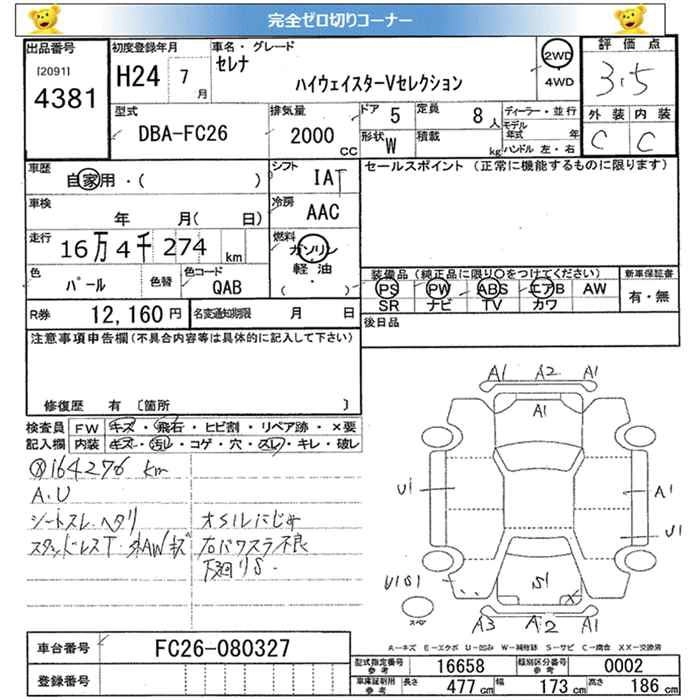 完全ゼロ切りコーナー
出品番号 [2091] 4381
初度登録年月 H24 7月
車名・グレード セレナ ハイウェイスターVセレクション
2WD 4WD
評価点 3.5
外装 C 内装 C
型式 DBA-FC26
排気量 2000 CC
ドア 5 定員 8 人
形状 W 積載 kg
ディーラー・並行
モデル年式 年
ハンドル 左・右
車歴 自家用・( )
シフト IAT
セールスポイント (正常に機能するものに限ります)
車検 年 月( 日)
冷房 AAC
走行 16万4千274 km
燃料 ガソリン 軽油 ( ・ )
色 パール 色替
色コード QAB
装備品(純正品に限り○をつけてください)
PS PW ABS エアB AW
SR ナビ TV カワ
新車保証書 有・無
R券 12,160円 名変通知期限 月 日
後日品
注意事項申告欄(不具合内容等は具体的に記入して下さい)
修復歴 有 〔箇所 〕
検査員記入欄
FW キズ・飛石・ヒビ割・リペア跡・×要
内装 キズ・汚レ・コゲ・穴・スレ・キレ・破レ
164276 km
A.U
シートスレ.ヘタリ オイルにじみ
スタッドレスT.外AWキズ 右パワスラ不良
下廻りS.
A1 A2 A1
A1
U1 A1
U1
U1S1 S1 X
A3 A2 A1
スペア
A−キズ E−エクボ U−凹み W−補修跡 S−サビ C−腐合 XX−交換済
車台番号 FC26-080327
登録番号
型式指定番号 参考 16658 類別区分番号 参考 0002
車庫証明用 参考 長さ 477cm 幅 173cm 高さ 186cm